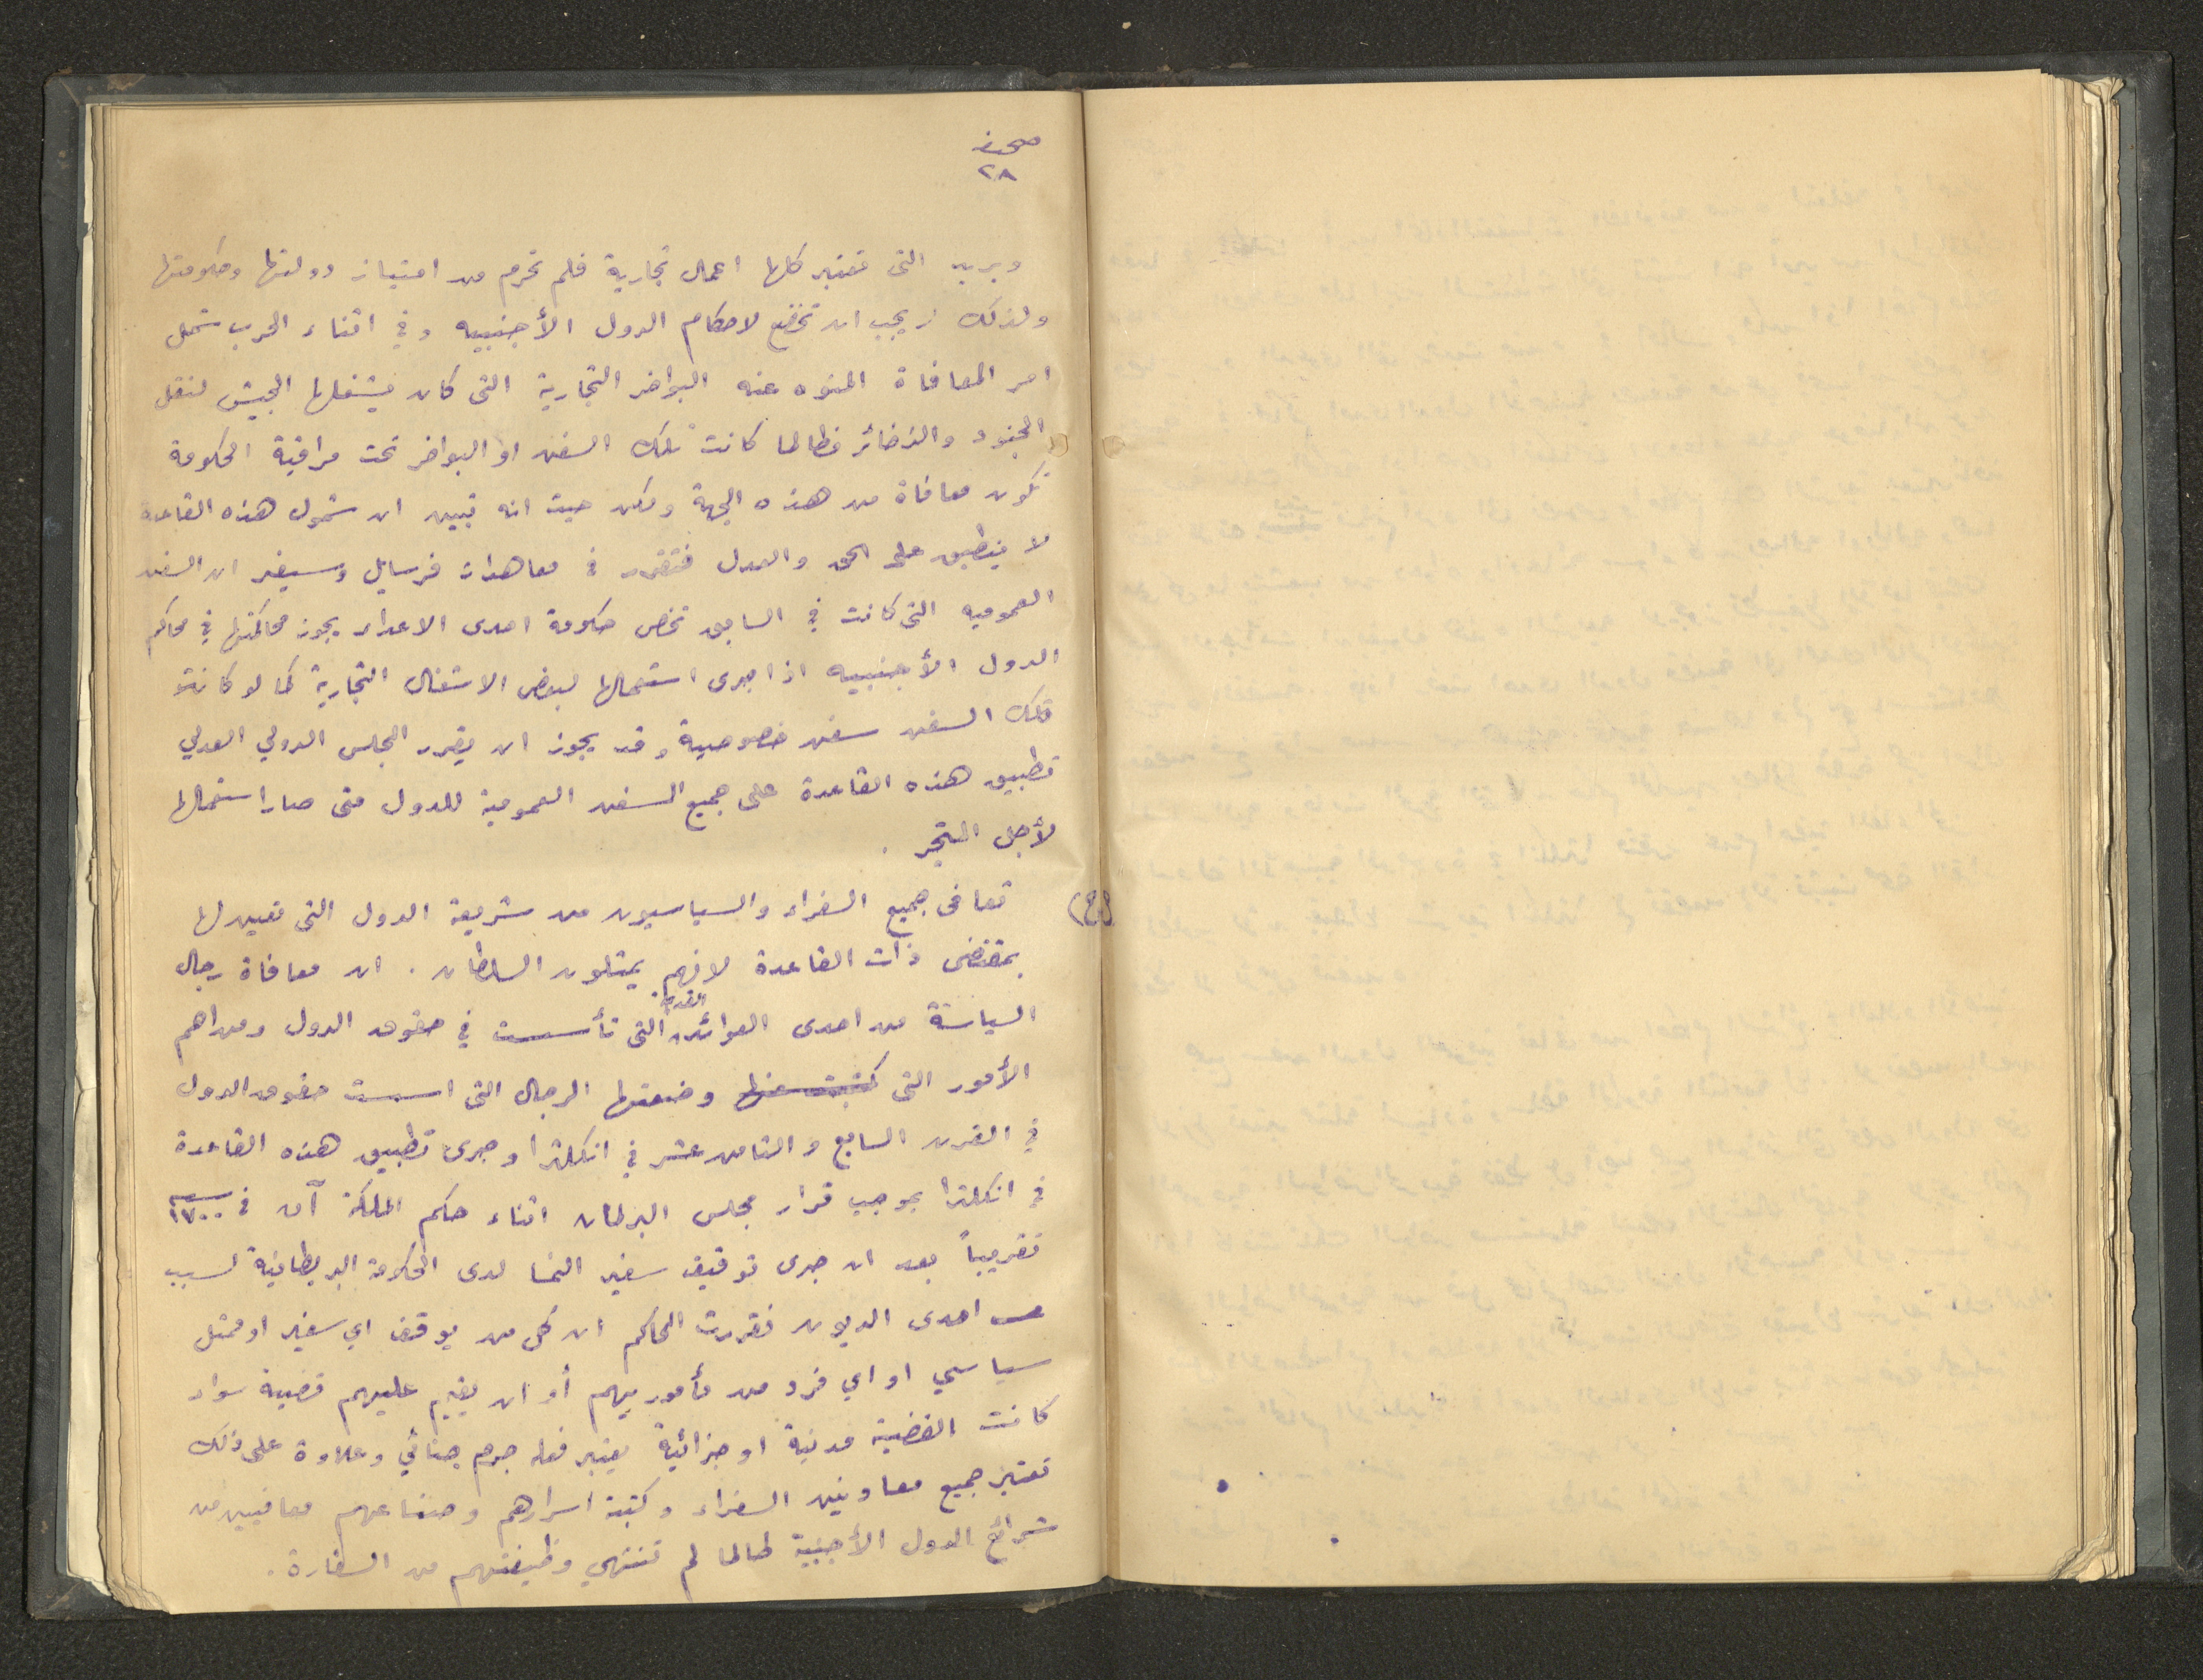 صحيفة
٢٨
وبريد التى تعتبر كلها اعمال تجارية فلم تحرم من امتياز دولتها وحكومتها
ولذلك يجب ان تخضع لاحكام الدول الأجنبيه وفي اثناء الحرب شمل
امر المعافاة المنوه عنه البواخر التجارية التى كان يشغلها الجيش لنقل
الجنود والذخائر فطالما كانت تلك السفن او البواخر تحت مراقبة الحكومة
تكون معافاة من هذه الجهة ولكن حيث انه تبين ان شمول هذه القاعدة
لا ينطبق على الحق والعدل فتقرر في معاهدات فرسايل وسيفر ان السفن
العموميه التى كانت في السابق تخص حكومة احدى الاعداء يجوز محاكمتها في محاكم
الدول الأجنبيه اذا جرى استعمالها لبعض الاشغال التجارية كما لو كانت
تلك السفن سفن خصوصية وقد يجوز ان يقرر المجلس الدولي العدلي
تطبيق هذه القاعدة على جميع السفن العمومية للدول متى صار استعمالها
لأجل المتجر .
(ج) تعافى جميع السفراء والسياسيون من شريعة الدول التى تعين لها
بمقتضى ذات القاعدة لانهم يمثلون السلطان . ان معافاة رجال
السياسة من احدى العوائد القديمة التى تأسست في حقوق الدول ومن اهم
الأمور التى كتبت عنها وضعتها الرجال التى اسست حقوق الدول
في القرن السابع والثامن عشر في انكلترا وجرى تطبيق هذه القاعدة
في انكلترا بموجب قرار مجلس البرلمان اثناء حكم الملكة آن في سنة ١٧٠٠
تقريباً بعد ان جرى توقيف سفير النمسا لدى الحكومة البريطانية لسبب
احدى الديون فقررت المحاكم ان كل من يوقف اي سفير او ممثل
سياسي او اي فرد من مأموريهم أو ان يقيم عليهم قضية سواء
كانت القضية مدنية او جزائية يعتبر فعله جرم جنائي وعلاوة على ذلك
تعتبر جميع معاونين السفراء وكتبة اسرارهم وصناعهم معافيين من
شرائع الدول الأجنبية طالما لم تنتهي وظيفتهم من السفارة .